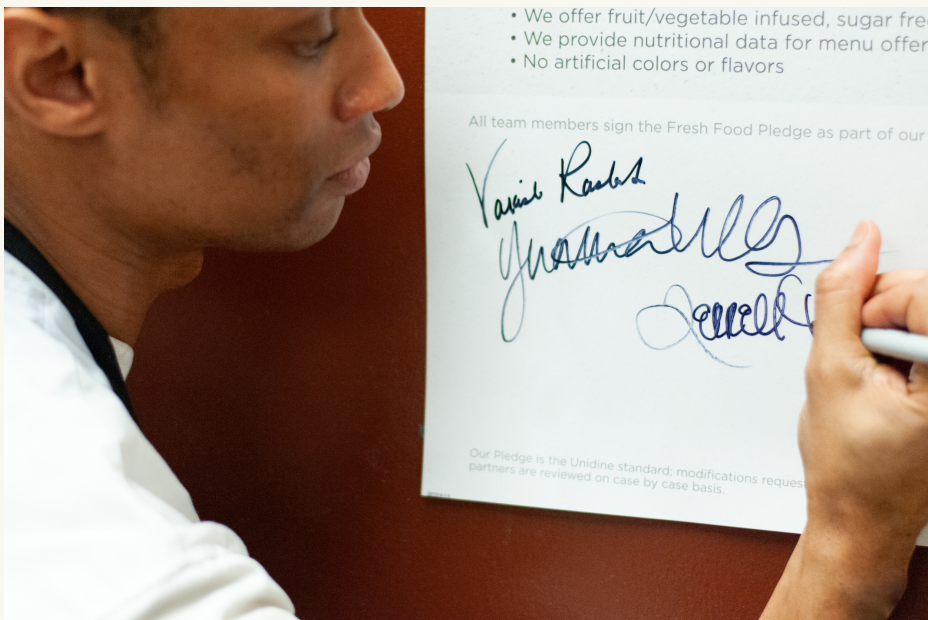 • We offer fruit/vegetable infused, sugar fre
• We provide nutritional data for menu offer
• No artificial colors or flavors
All team members sign the Fresh Food Pledge as part of our
Our Pledge is the Unidine standard; modifications reques
partners are reviewed on case by case basis.